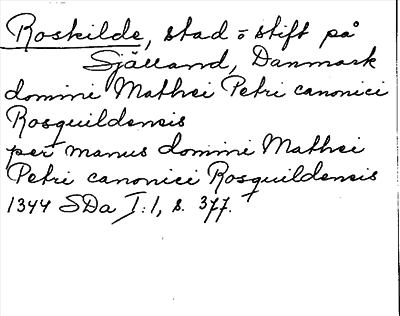 Roskilde, stad o stift på
Själland, Danmark
domini Mathei Petri canonici
Rosquildensis
per manus domini Mathei
Petri canonici Rosquildensis
1344 SDa I:1, s. 377.